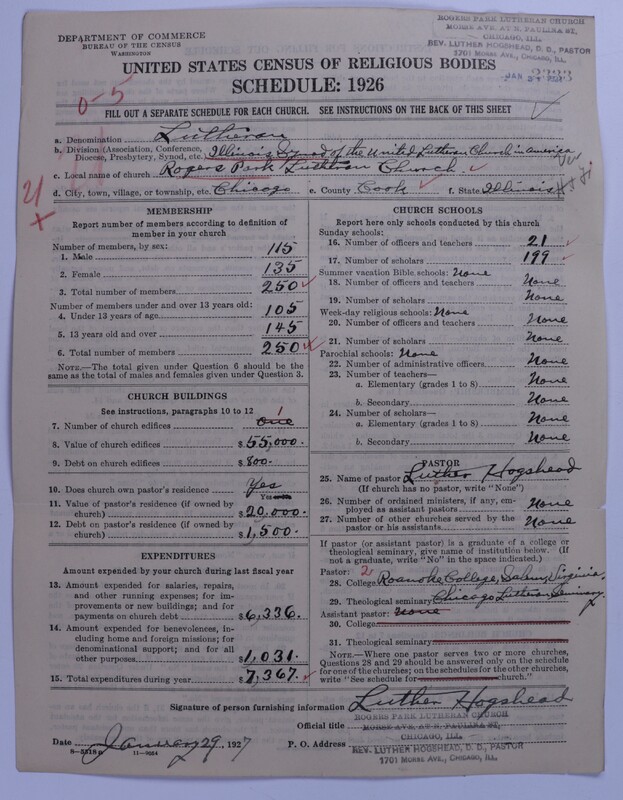 DEPARTMENT OF COMMERCE
BUREAU OF THE CENSUS
WASHINGTON
ROGERS PARK LUTHERAN CHURCH
MORSE AVE. AT N. PAULINA ST.
CHICAGO, ILL.
REV. LUTHER HOGSHEAD, D. D., PASTOR
1701 MORSE AVE., CHICAGO, ILL.
UNITED STATES CENSUS OF RELIGIOUS BODIES
JAN
SCHEDULE: 1926
0-5
FILL OUT A SEPARATE SCHEDULE FOR EACH CHURCH. SEE INSTRUCTIONS ON THE BACK OF THIS SHEET
a. Denomination Lutheran
b. Division (Association, Conference, Diocese, Presbytery, Synod, etc.) Illinois Synod of the United Lutheran Church in America
c. Local name of church Rogers Park Lutheran Church
d. City, town, village, or township, etc. Chicago e. County Cook f. State Illinois
MEMBERSHIP
Report number of members according to definition of
member in your church
Number of members, by sex:
1. Male 115
2. Female 135
3. Total number of members 250
Number of members under and over 13 years old:
4. Under 13 years of age 105
5. 13 years old and over 145
6. Total number of members 250
NOTE.—The total given under Question 6 should be
same as the total of males and females given under Question 3.
CHURCH BUILDINGS
See instructions, paragraphs 10 to 12
7. Number of church edifices one 1
8. Value of church edifices $55,000.
9. Debt on church edifices $800.
10. Does church own pastor's residence Yes
11. Value of pastor's residence (if owned by
church) $20,000.
12. Debt on pastor's residence (if owned by
church) $1,500.
EXPENDITURES
Amount expended by your church during last fiscal year
13. Amount expended for salaries, repairs,
and other running expenses; for im-
provements or new buildings; and for
payments on church debt $6,336.
14. Amount expended for benevolences, in-
cluding home and foreign missions; for
denominational support; and for all
other purposes $1,031.
15. Total expenditures during year $7,367.
CHURCH SCHOOLS
Report here only schools conducted by this church
Sunday schools:
16. Number of officers and teachers 21
17. Number of scholars 199
Summer vacation Bible schools: None
18. Number of officers and teachers None
19. Number of scholars None
Week-day religious schools: None
20. Number of officers and teachers None
21. Number of scholars None
Parochial schools: None
22. Number of administrative officers None
23. Number of teachers—
a. Elementary (grades 1 to 8) None
b. Secondary None
24. Number of scholars—
a. Elementary (grades 1 to 8) None
b. Secondary None
PASTOR
25. Name of pastor Luther Hogshead
(If church has no pastor, write "None")
26. Number of ordained ministers, if any, em-
ployed as assistant pastors None
27. Number of other churches served by the
pastor or his assistants None
If pastor (or assistant pastor) is a graduate of a college or
theological seminary, give name of institution below. (If
not a graduate, write "No" in the space indicated.)
Pastor: 2
28. College Roanoke College, Salem, Virginia.
29. Theological seminary Chicago Lutheran Seminary
Assistant pastor: None
30. College
31. Theological seminary
NOTE.—Where one pastor serves two or more churches,
Questions 28 and 29 should be answered only on the schedule
for one of the churches; on the schedules for the other churches,
write "See schedule for church."
Signature of person furnishing information Luther Hogshead
Official title ROGERS PARK LUTHERAN CHURCH
MORSE AVE. AT N. PAULINA ST.
CHICAGO, ILL.
Date January 29, 1927 P. O. Address REV. LUTHER HOGSHEAD, D. D., PASTOR
1701 MORSE AVE., CHICAGO, ILL.
11-9684